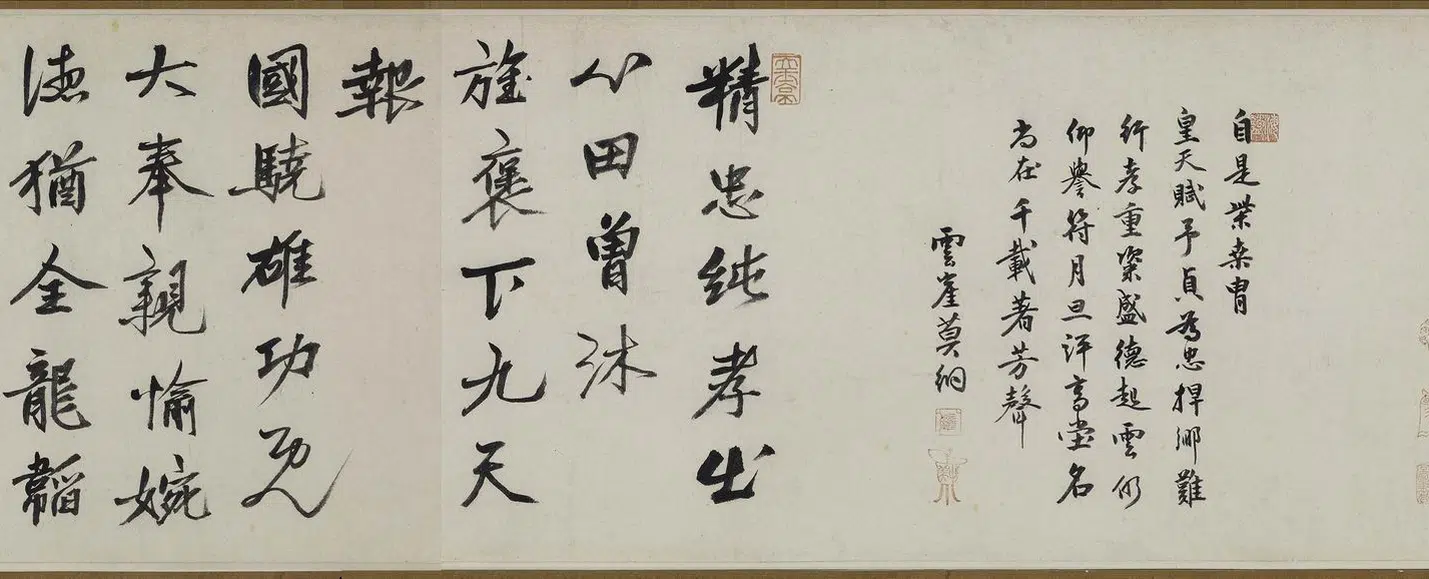 自是柴桑冑
皇天賦予貞為忠捍鄉難
行孝重粢盛德起雲仍
仰譽符月旦評高堂名
尚在千載著芳聲
雲崖莫
精忠純孝出
心田曾沐
旌褒下九天
報
國驍雄功既
大奉親愉婉
德猶全龍韜